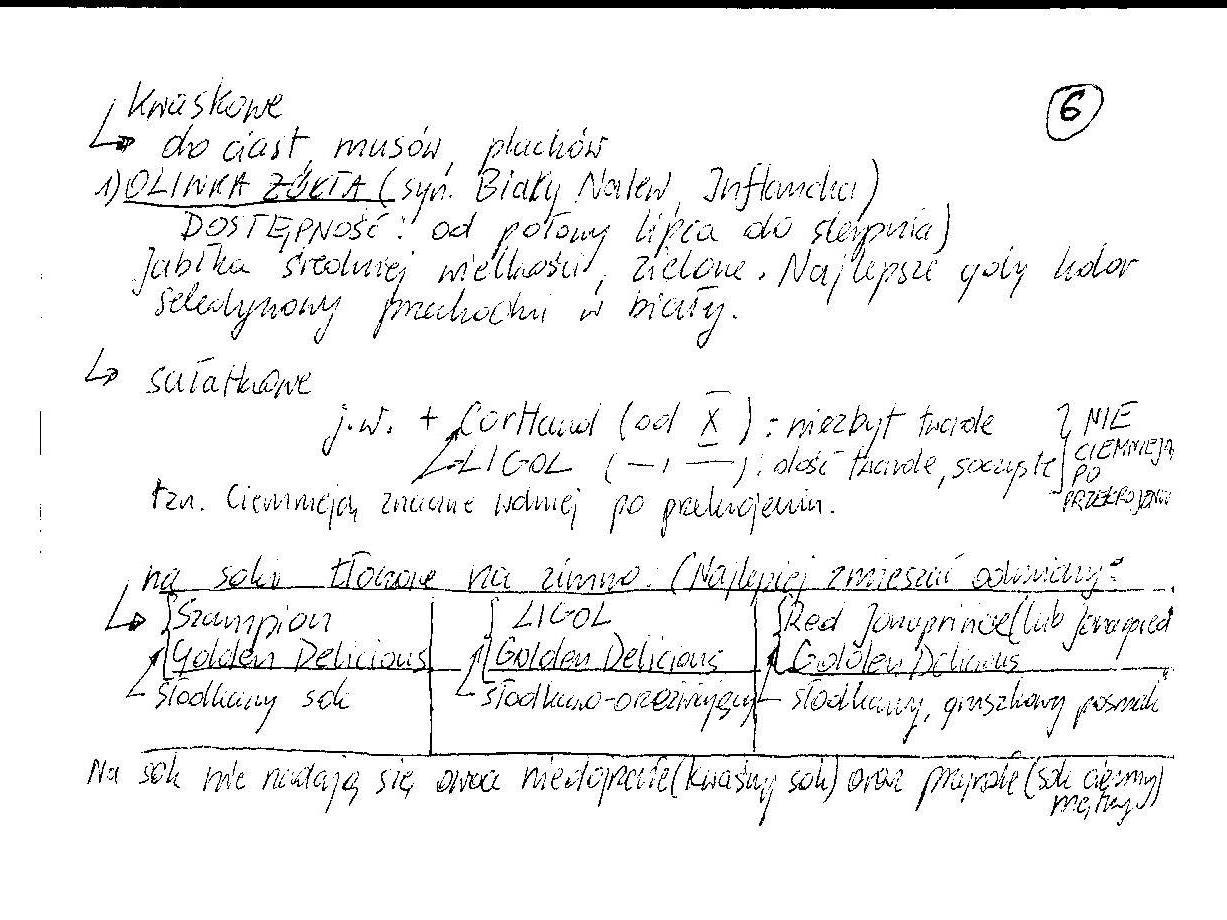 6
kwaskowe
↳ do ciast, musów, placków
1) OLINKA ŻÓŁTA (syn. Biały Nalew, Inflancka)
DOSTĘPNOŚĆ: od połowy lipca do sierpnia)
Jabłka średniej wielkości, zielone. Najlepsze gdy kolor
seledynowy przechodzi w biały.
↳ sałatkowe
j.w. + Cortland (od X): niezbyt twarde
LIGOL (—„—): dość twarde, soczyste
} NIE CIEMNIEJĄ PO PRZEKROJENIU
tzn. ciemnieją znacznie wolniej po przekrojeniu.
na soki tłoczone na zimno: (Najlepiej zmieszać odmiany:
↳ Szampion | LIGOL | Red Jonaprince (lub Jonagored
Golden Delicious | Golden Delicious | Golden Delicious
słodkawy sok | słodkawo-orzeźwiający | słodkawy, gruszkowy posmak
Na sok nie nadają się owoce niedojrzałe (kwaśny sok) oraz przejrzałe (sok ciemny
mętny)